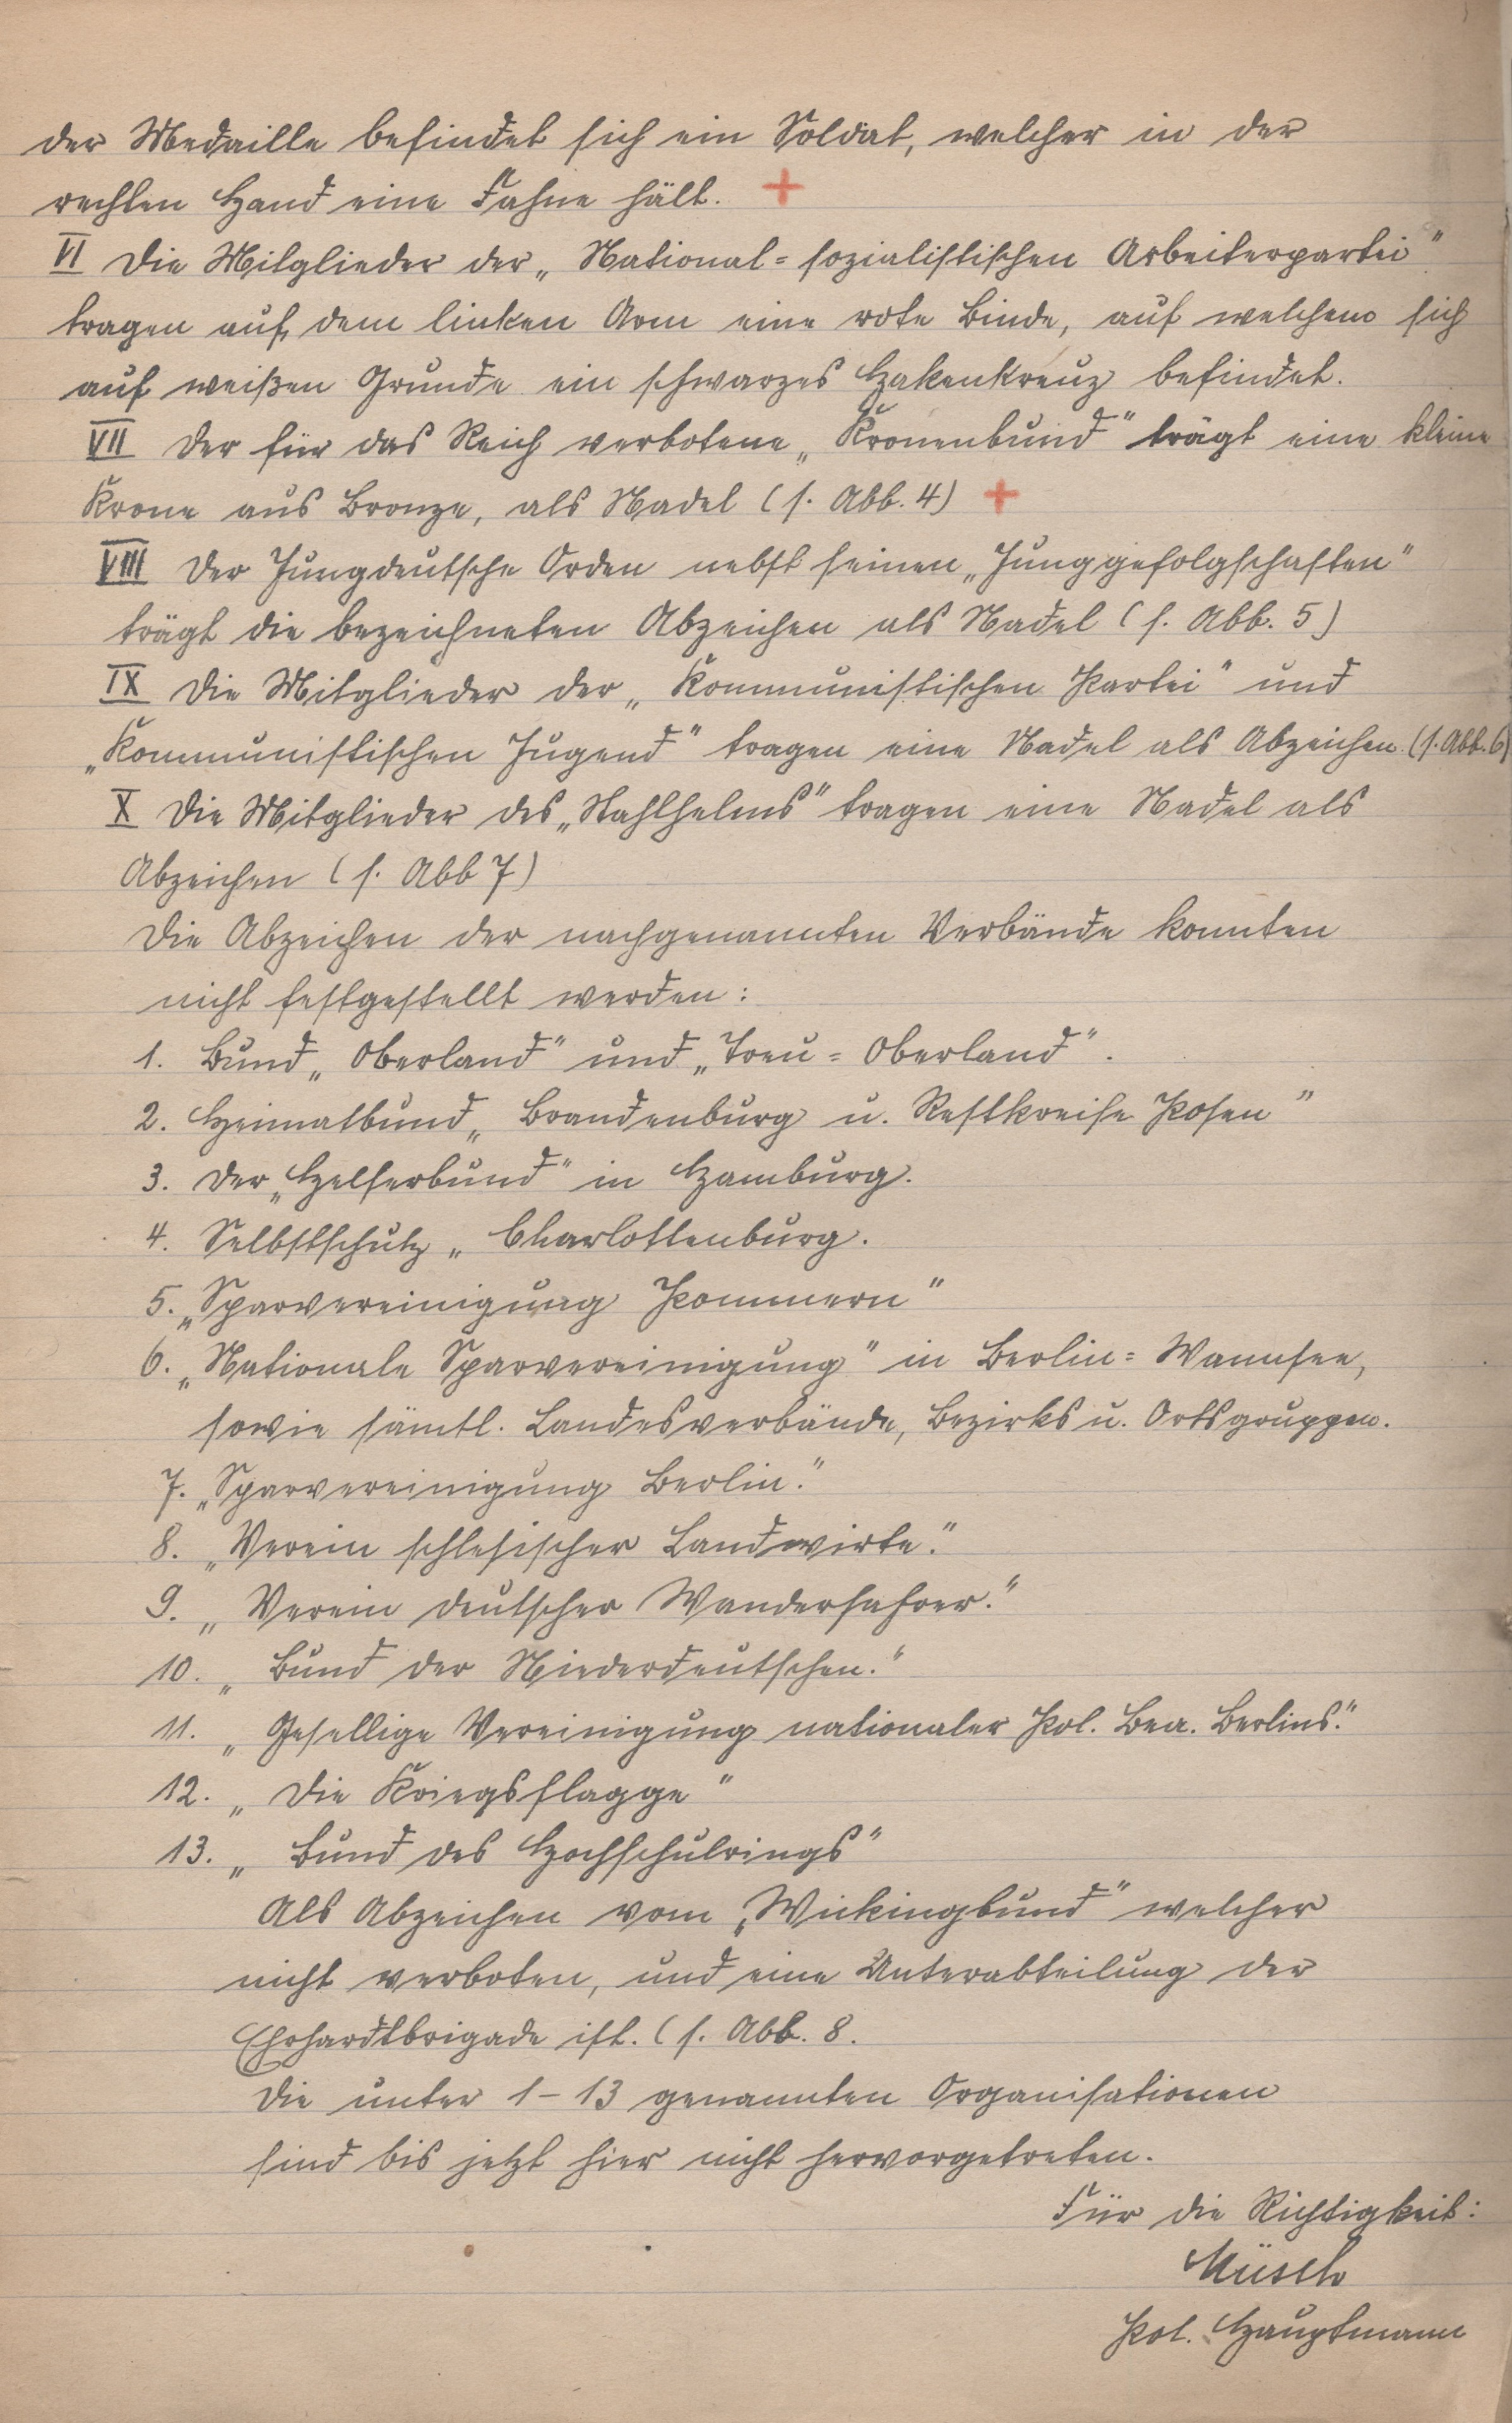 der Medaille befindet sich ein Soldat, welcher in der
rechten Hand eine Fahne hält. +
VI Die Mitglieder der „National=sozialistischen Arbeiterpartei"
tragen auf dem linken Arm eine rote Binde, auf welchem sich
auf weißen Grunde ein schwarzes Hakenkreuz befindet.
VII Der für das Reich verbotene „Kronenbund" trägt eine kleine
Krone aus Bronze, als Nadel (s. Abb. 4) +
VIII Der Jungdeutsche Orden nebst seinen „Junggefolgschaften"
trägt die bezeichneten Abzeichen als Nadel (s. Abb. 5)
IX Die Mitglieder der „Kommunistischen Partei" und
„Kommunistischen Jugend" tragen eine Nadel als Abzeichen. (s. Abb. 6)
X Die Mitglieder des „Stahlhelms" tragen eine Nadel als
Abzeichen (s. Abb 7)
Die Abzeichen der nachgenannten Verbände konnten
nicht festgestellt werden:
1. Bund „Oberland" und „Treu=Oberland".
2. Heimatbund „Brandenburg u. Restkreise Posen"
3. Der „Helferbund" in Hamburg.
4. Selbstschutz „Charlottenburg.
5. „Sparvereinigung Pommern"
6. „Nationale Sparvereinigung" in Berlin=Wannsee,
sowie sämtl. Landesverbände, Bezirks u. Ortsgruppen.
7. „Sparvereinigung Berlin."
8. „Verein schlesischer Landwirte."
9. „Verein deutscher Wanderfahrer."
10. „Bund der Niederdeutschen."
11. „Gesellige Vereinigung nationaler Pol. Bea. Berlins."
12. „Die Kriegsflagge"
13. „Bund des Hochschulrings"
Als Abzeichen vom „Wickingbund" welcher
nicht verboten, und eine Unterabteilung der
Ehrhardtbrigade ist. (s. Abb. 8.
Die unter 1–13 genannten Organisationen
sind bis jetzt hier nicht hervorgetreten.
Für die Richtigkeit:
Müsch
Pol. Hauptmann